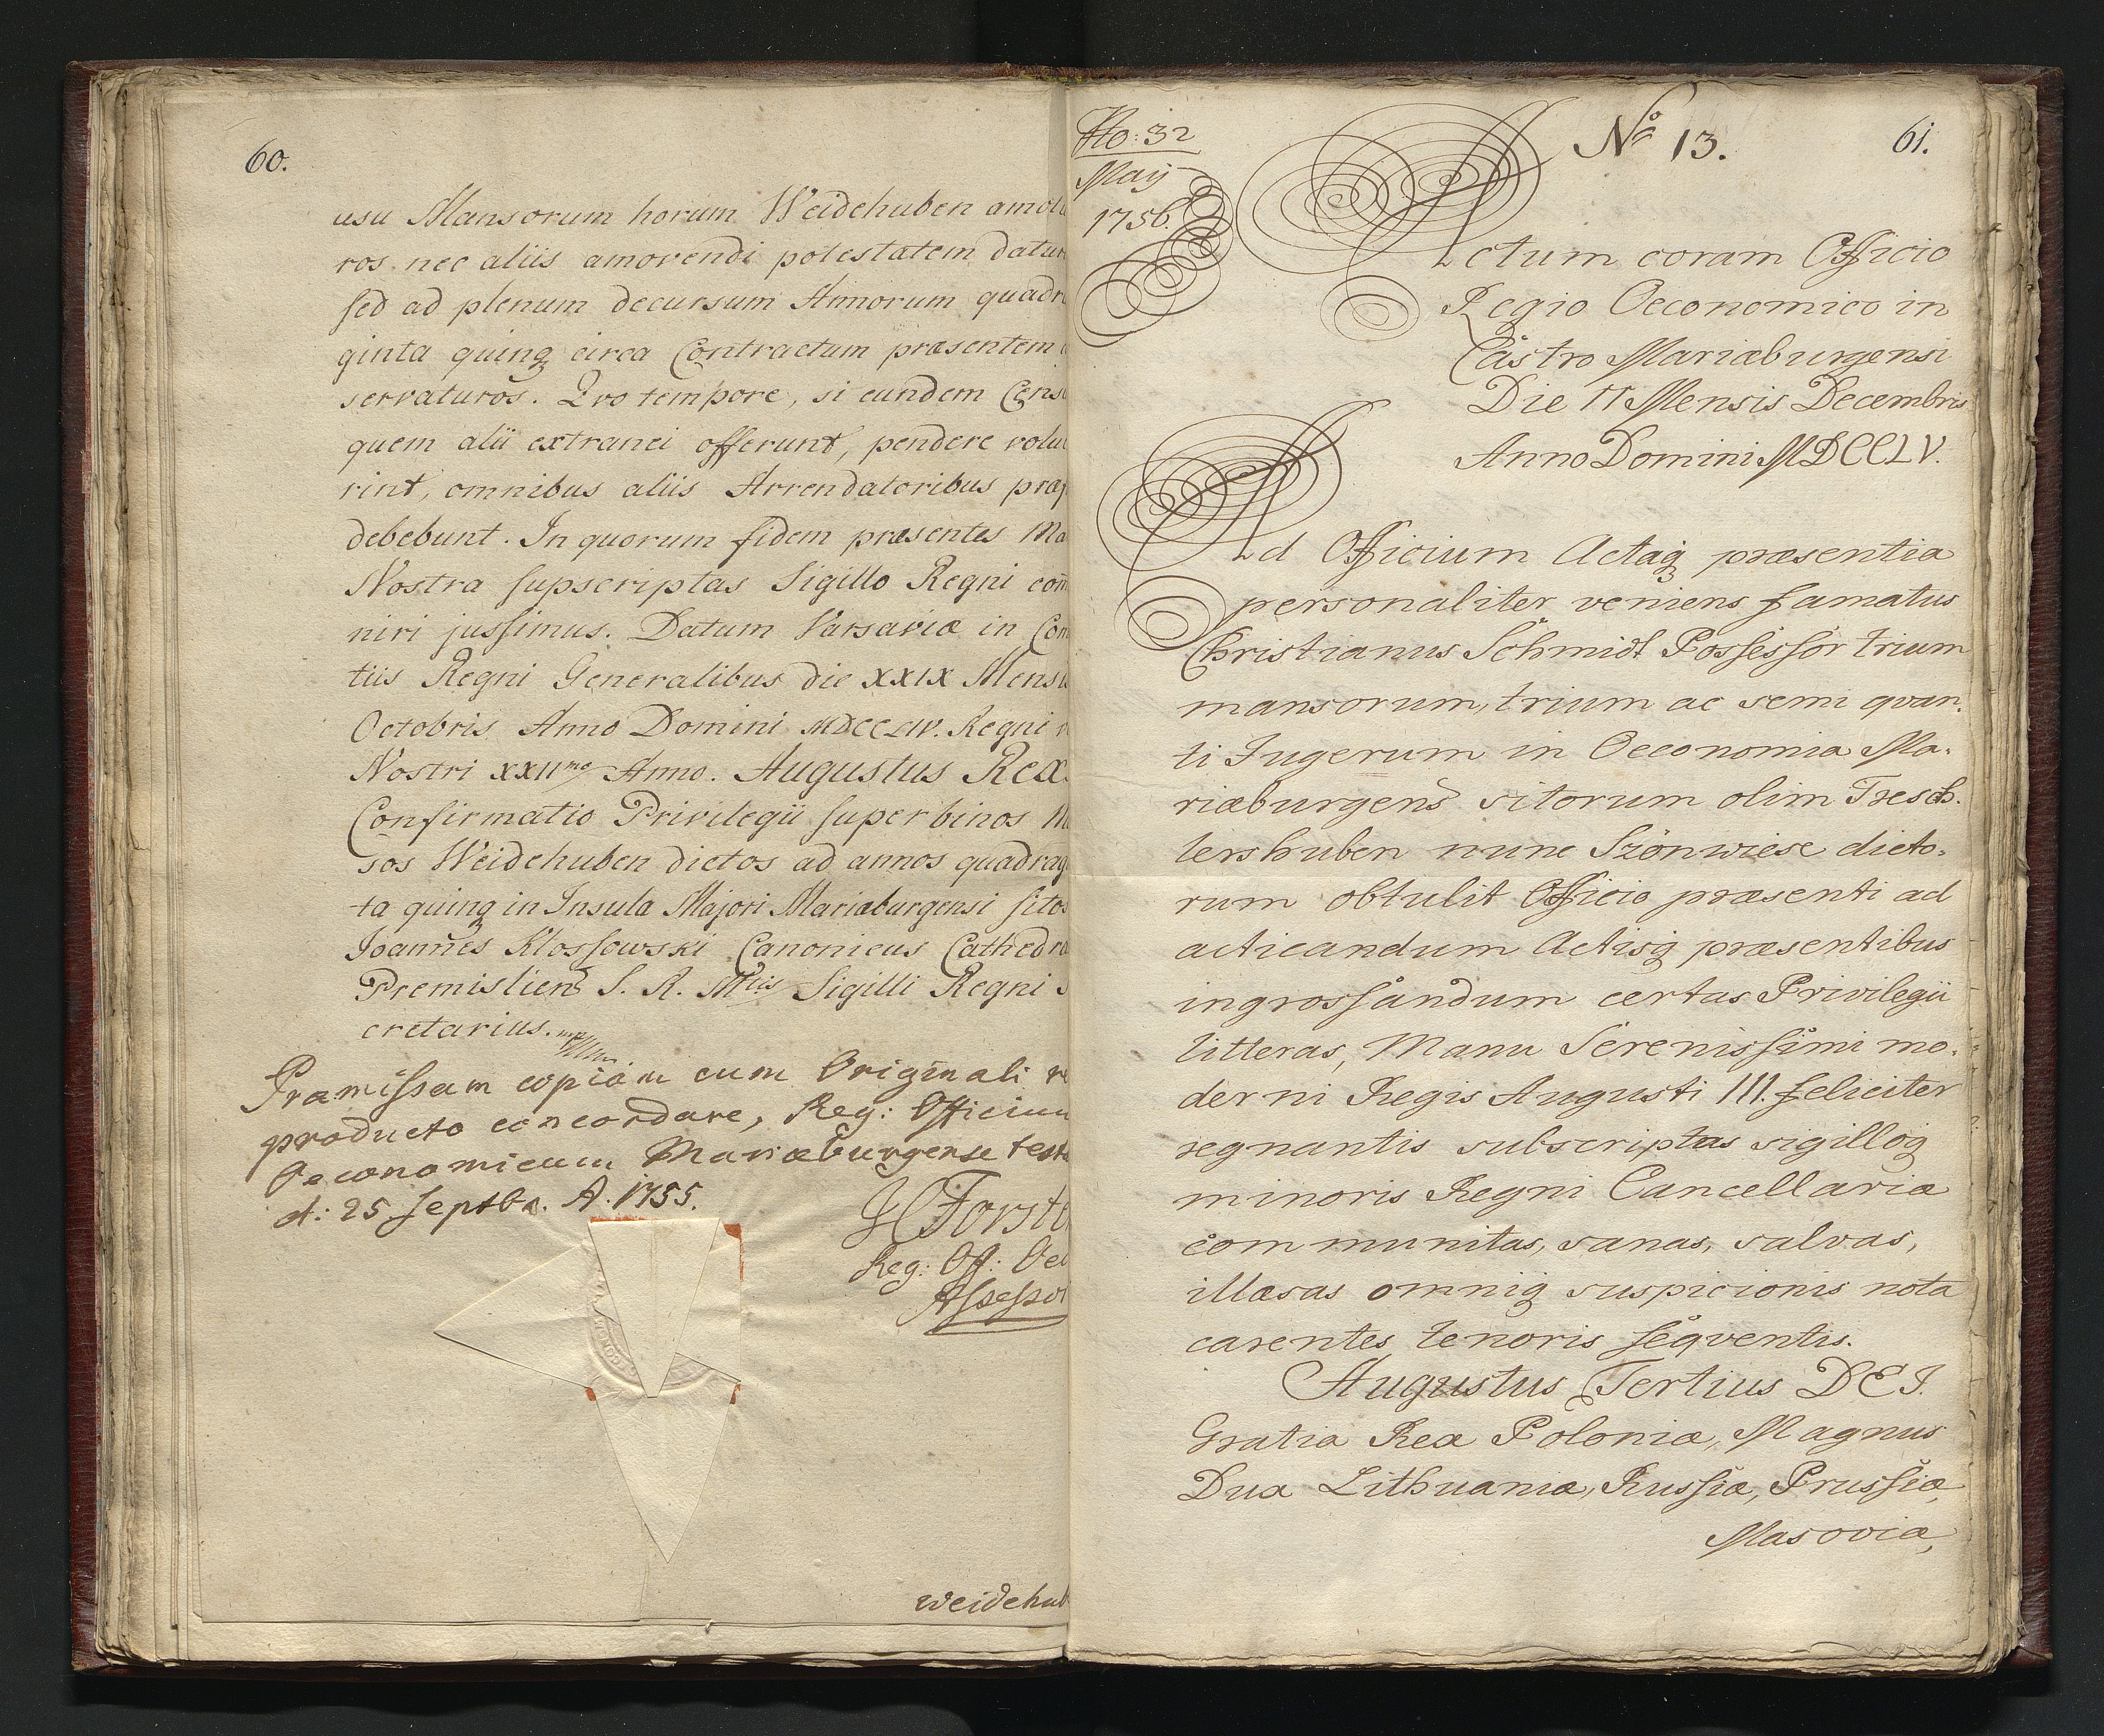 60.
usu Mansorum horum Weidehuben amotu
ros nec aliis amovendi potestatem datur
sed ad plenum decursum Annorum quadra
ginta quinq circa Contractum præsentem
servaturos. Quo tempore, si eundem Cens
quem alii extranei offerunt, pendere volue
rint, omnibus aliis Arrendatoribus præ
debebunt. In quorum fidem præsentes Ma
Nostra supscriptas Sigillo Regni com
niri jussimus. Datum Varsaviæ in Com
tiis Regni Generalibus die XXIX Mensis
Octobris Anno Domini MDCCLIV. Regni
Nostri XXIImo Anno. Augustus Rex.
Confirmatio Privilegii super binos M
sos Weidehuben dictos ad annos quadrag
ta quinq in Insula Majori Mariæburgensi sitos
Joannes Klossowski Canonicus Cathedra
Premislien S. R. Mtis Sigilli Regni S
cretarius. mpp
Præmissam copiam cum Originali re
producto concordare, Reg: Officium
Oeconomicum Mariæburgense testa
d: 25 Septbr. A. 1755.
Forste
Reg: Off: Oec
Assessor
Weidehub
No: 32
Maij
1756.
No 13.
61.
Actum coram Officio
Regio Oeconomico in
Castro Mariæburgensi
Die 17 Mensis Decembris
Anno Domini MDCCLV.
Ad Officium Actaq præsentia
personaliter veniens famatus
Christianus Schmidt Possessor trium
mansorum, trium ac semi quan-
ti Jugerum in Oeconomia Ma-
riæburgens sitorum olim Tresch-
lershuben nunc Szönwiese dicto-
rum obtulit Officio præsenti ad
acticandum Actisq præsentibus
ingrossandum certas Privilegii
litteras, Manu Serenissimi mo-
derni Regis Augusti III. feliciter
regnantis subscriptas sigilloq
minoris Regni Cancellariæ
communitas, sanas, salvas,
illæsas omniq suspicionis nota
carentes tenoris seqventis.
Augustus Tertius DEI.
Gratia Rex Poloniæ, Magnus
Dux Lithuaniæ, Russiæ, Prussiæ,
Masoviæ,